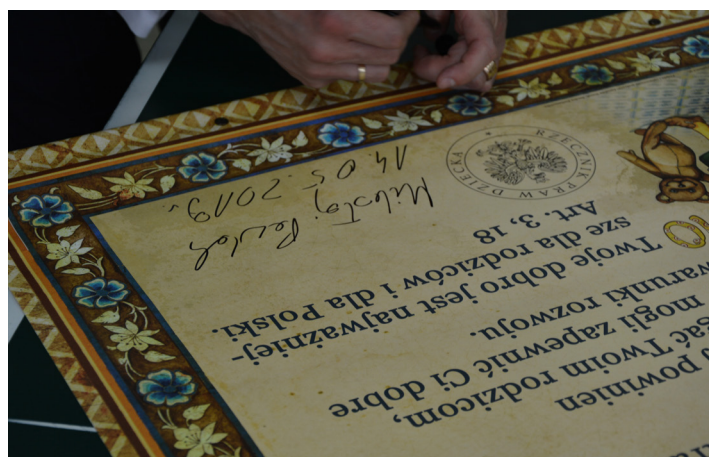 powinien
gać Twoim rodzicom,
mogli zapewnić Ci dobre
warunki rozwoju.
Twoje dobro jest najważniej-
sze dla rodziców i dla Polski.
Art. 3, 18
RZECZNIK PRAW DZIECKA
Mikołaj Pawlak
14.05.2019r.